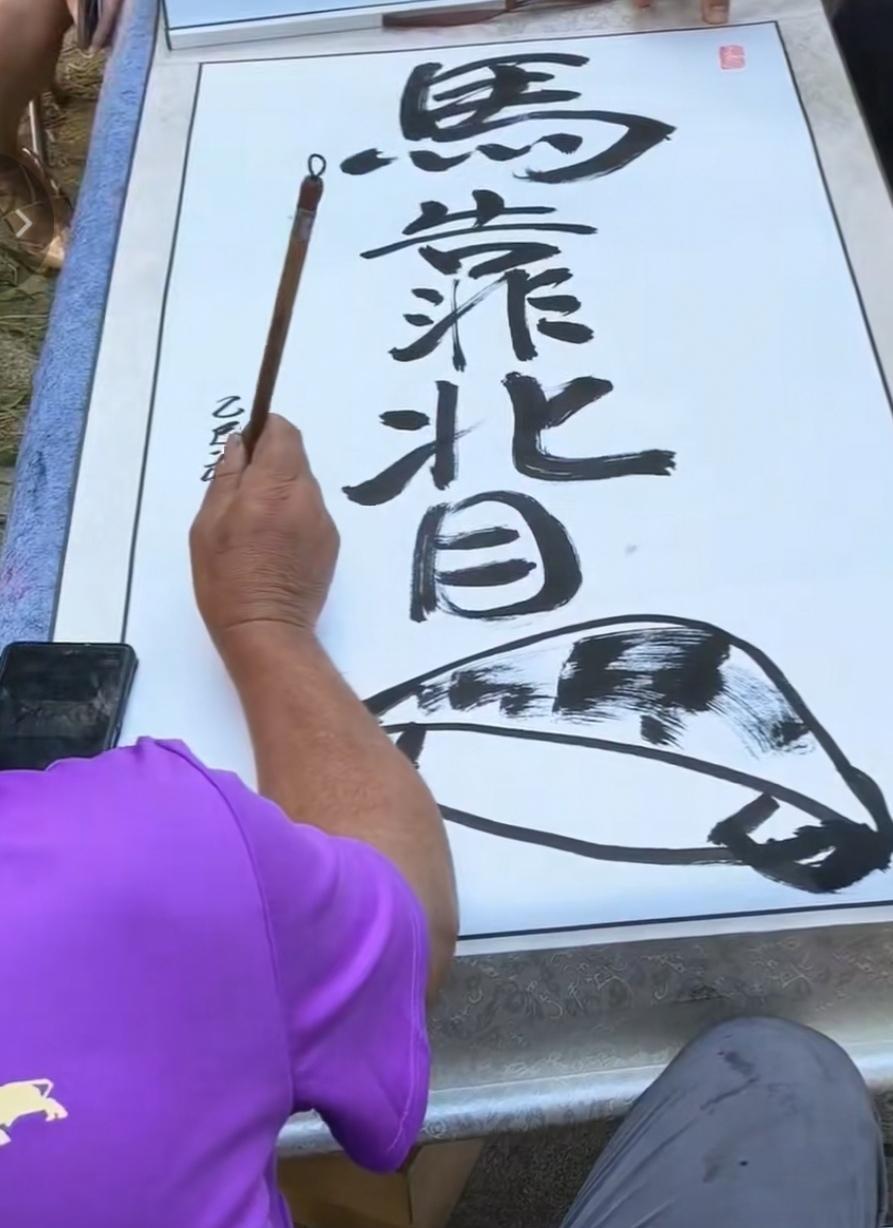 馬靠北目
乙巳